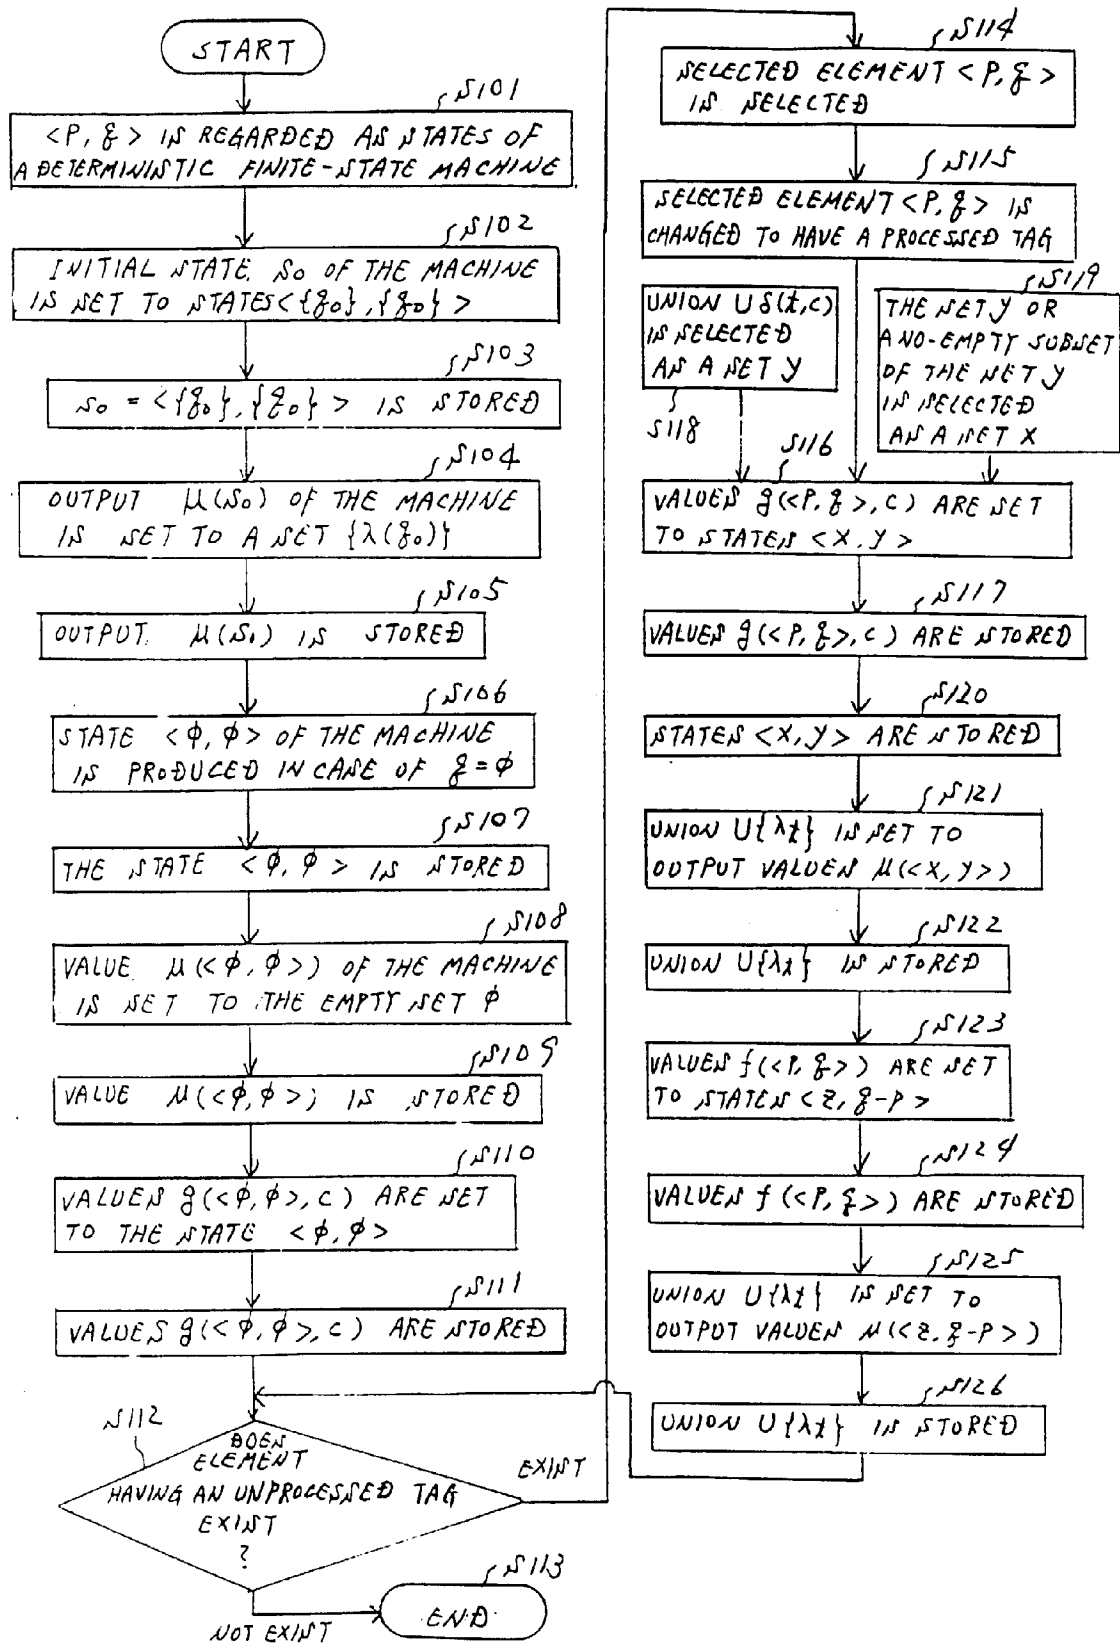 START
S101
<P, q> IS REGARDED AS STATES OF
A DETERMINISTIC FINITE-STATE MACHINE
S102
INITIAL STATE S₀ OF THE MACHINE
IS SET TO STATES<{q₀},{q₀}>
S103
S₀ = <{q₀},{q₀}> IS STORED
S104
OUTPUT μ(S₀) OF THE MACHINE
IS SET TO A SET {λ(q₀)}
S105
OUTPUT. μ(S₀) IS STORED
S106
STATE <φ, φ> OF THE MACHINE
IS PRODUCED IN CASE OF q=φ
S107
THE STATE <φ, φ> IS STORED
S108
VALUE μ(<φ, φ>) OF THE MACHINE
IS SET TO THE EMPTY SET φ
S109
VALUE μ(<φ,φ>) IS STORED
S110
VALUES g(<φ, φ>, C) ARE SET
TO THE STATE <φ, φ>
S111
VALUES g(<φ, φ>, C) ARE STORED
S112
DOES
ELEMENT
HAVING AN UNPROCESSED TAG
EXIST
?
EXIST
NOT EXIST
S113
END
S114
SELECTED ELEMENT <P, q>
IS SELECTED
S115
SELECTED ELEMENT <P, q> IS
CHANGED TO HAVE A PROCESSED TAG
UNION U δ(t, c)
IS SELECTED
AS A SET Y
S118
S119
THE SET Y OR
A NO-EMPTY SUBSET
OF THE SET Y
IS SELECTED
AS A SET X
S116
VALUES g(<P, q>, C) ARE SET
TO STATES <X, Y>
S117
VALUES g(<P, q>, C) ARE STORED
S120
STATES <X, Y> ARE STORED
S121
UNION U{λt} IS SET TO
OUTPUT VALUES μ(<X, Y>)
S122
UNION U{λt} IS STORED
S123
VALUES f(<P, q>) ARE SET
TO STATES <Z, q-P>
S124
VALUES f(<P, q>) ARE STORED
S125
UNION U{λt} IS SET TO
OUTPUT VALUES μ(<Z, q-P>)
S126
UNION U{λt} IS STORED